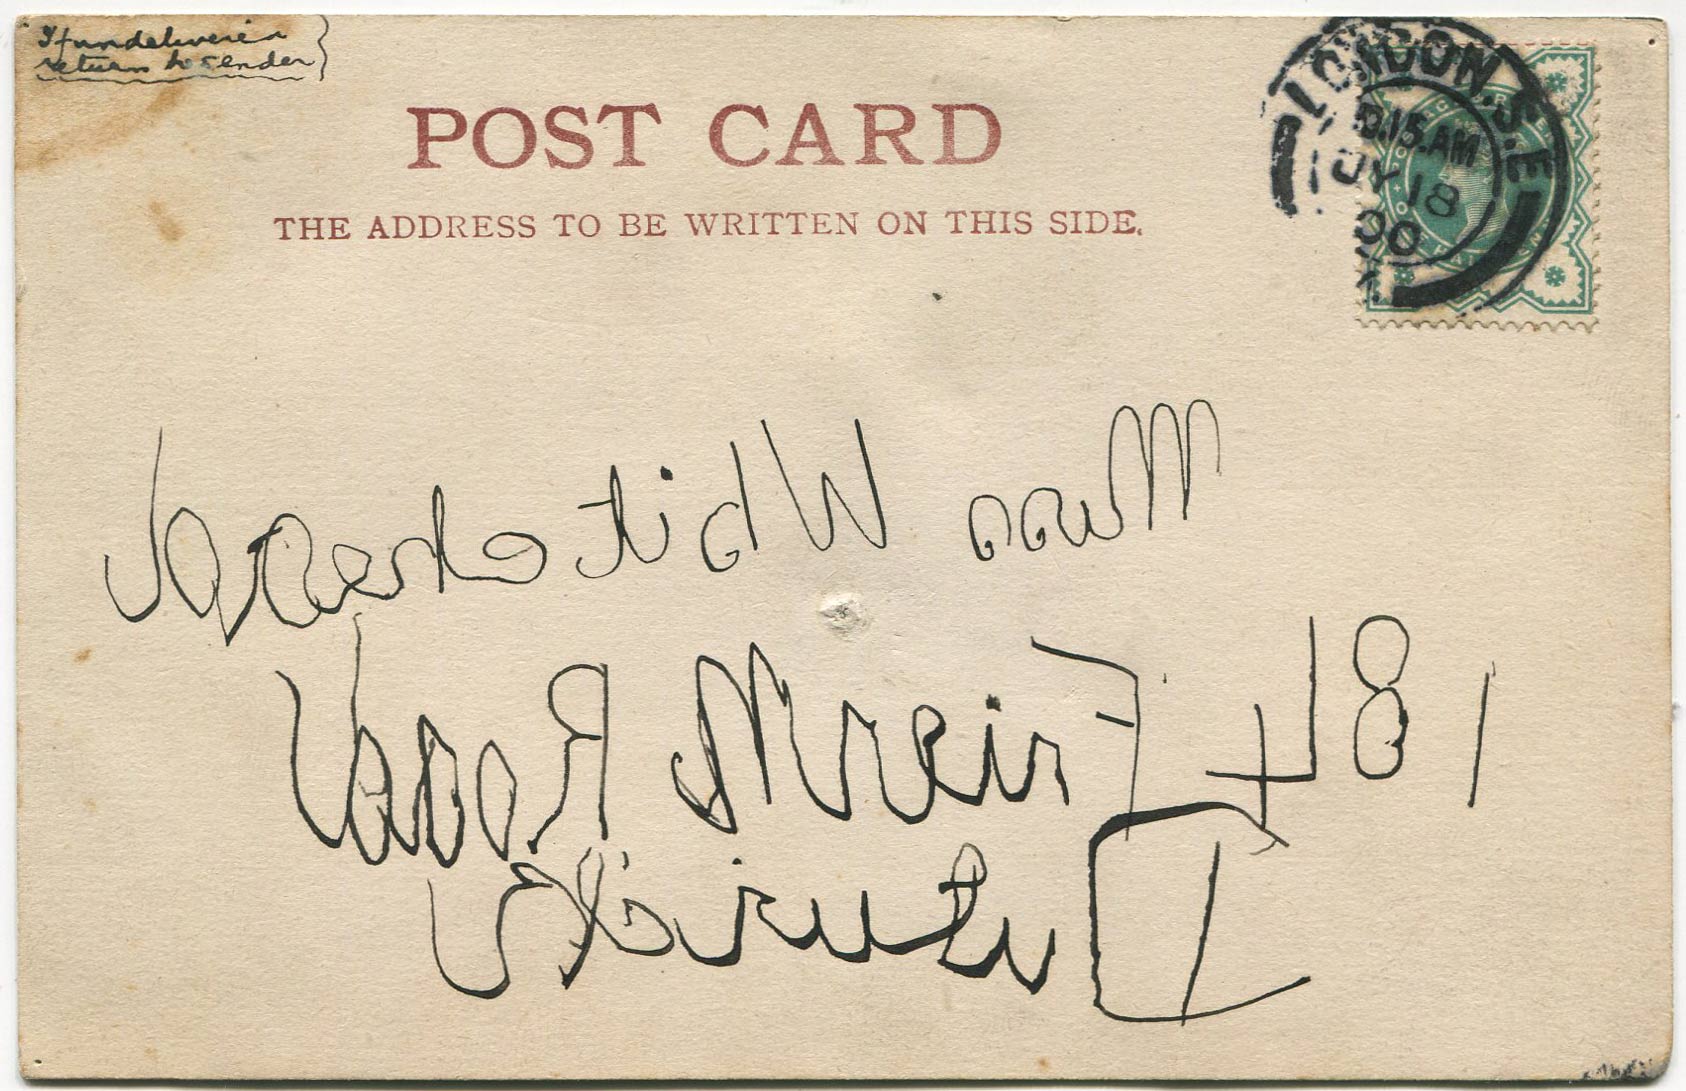 If undelivered
return to sender
POST CARD
THE ADDRESS TO BE WRITTEN ON THIS SIDE.
LONDON.S.E
10.15.AM
JY 18
00
Miss Whitehead
184 Friern Road
Dulwich